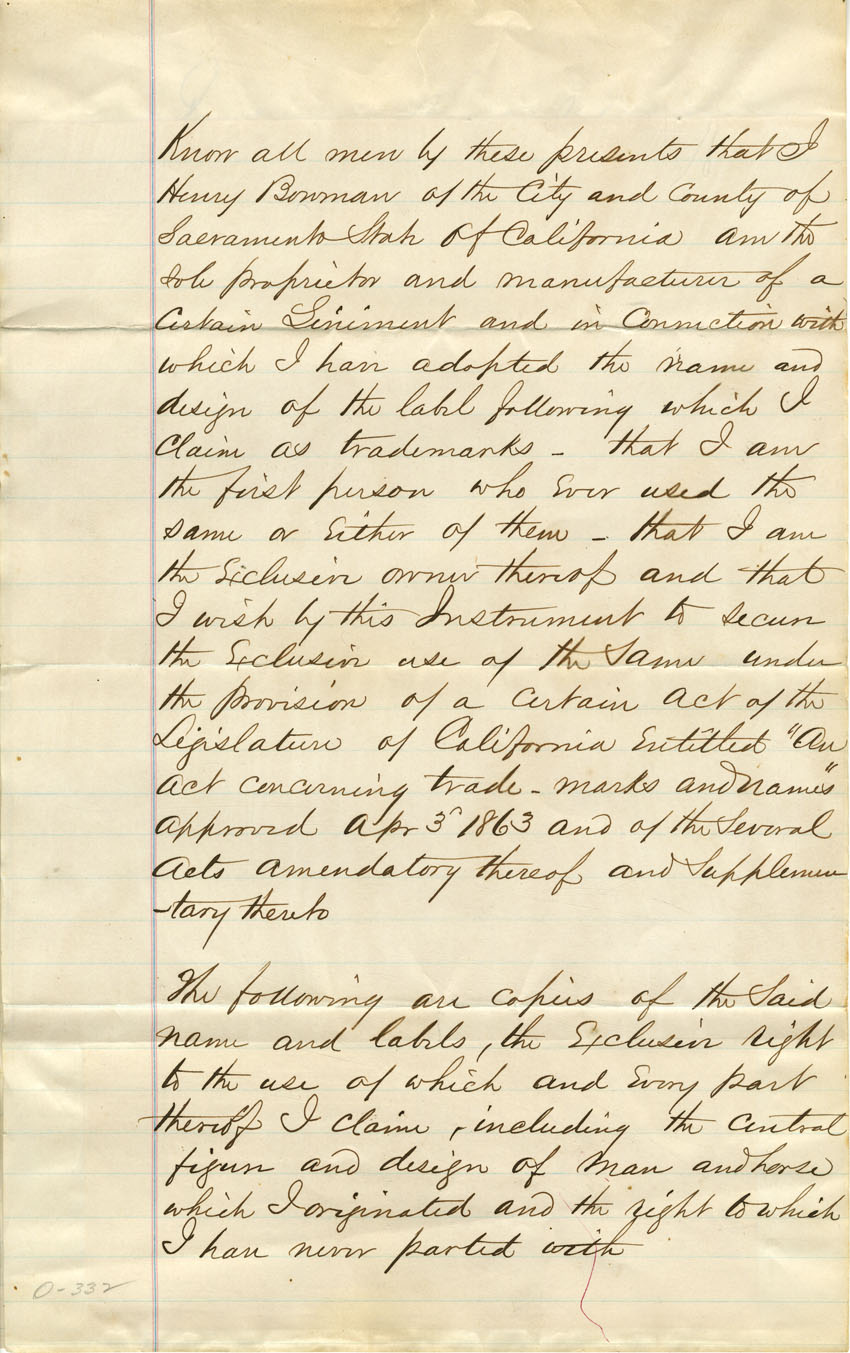 Know all men by these presents that I
Henry Bowman of the City and County of
Sacramento State of California am the
sole proprietor and manufacturer of a
Certain Liniment and in Connection with
which I have adopted the name and
design of the label following which I
Claim as trademarks - that I am
the first person who Ever used the
same or Either of them - that I am
the Exclusive owner thereof and that
I wish by this Instrument to secure
the Exclusive use of the Same under
the provision of a Certain Act of the
Legislature of California Entitled "An
Act concerning trade-marks and names"
approved Apr 3d 1863 and of the Several
Acts amendatory thereof and Supplemen
-tary thereto
The following are copies of the Said
name and labels, the Exclusive right
to the use of which and Every part
thereof I claim, including the Central
figure and design of man and horse
which I originated and the right to which
I have never parted with
0-332